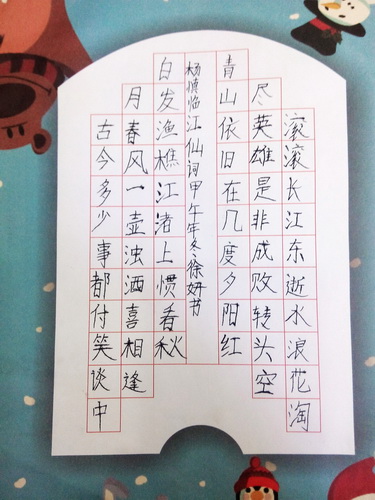 滚滚长江东逝水浪花淘
尽英雄是非成败转头空
青山依旧在几度夕阳红
杨慎临江仙词甲午年冬徐妍书
白发渔樵江渚上惯看秋
月春风一壶浊酒喜相逢
古今多少事都付笑谈中